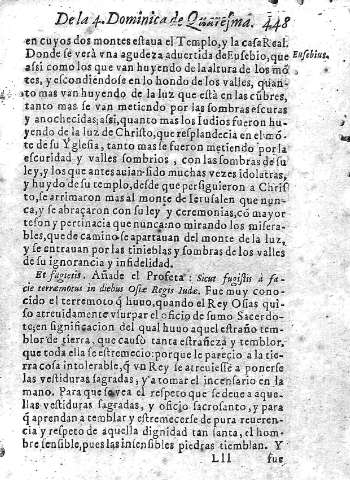 De la 4. Dominica de Quaresma. 448
en cuyos dos montes estaua el Templo, y la casa Real.
Donde se verà vna agudeza aduertida de Eusebio, que
Eusebius.
assi como los que van huyendo de la altura de los mõ
tes, y escondiendose en lo hondo de los valles, quan-
to mas van huyendo de la luz que està en las cũbres,
tanto mas se van metiendo por las sombras escuras
y anochecidas; assi, quanto mas los Iudios fueron hu
yendo de la luz de Christo, que resplandecia en el mõ-
te de su Yglesia, tanto mas se fueron metiendo por la
escuridad y valles sombrios, con las sombras de su
ley, y los que antes auian sido muchas vezes idolatras,
y huydo de su templo, desde que persiguieron a Chris
to, se arrimaron mas al monte de Ierusalen que nun-
ca, y se abraçaron con su ley y ceremonias, cõ mayor
teson y pertinacia que nunca: no mirando los misera-
bles, que de camino se apartauan del monte de la luz,
y se entrauan por las tinieblas y sombras de los valles
de su ignorancia y infidelidad.
Et fugietis. Añade el Profeta: Sicut fugistis à fa
cie terræmotus in diebus Osiæ Regis Iudæ. Fue muy cono-
cido el terremoto q̃ huuo, quando el Rey Osias qui-
so atreuidamente vsurpar el oficio de sumo Sacerdo-
te; en significacion del qual huuo aquel estraño tem-
blor de tierra, que causò tanta estrañeza y temblor,
que toda ella se estremecio: porque le parecio a la tie-
rra cosa intolerable, q̃ vn Rey se atreuiesse a ponerse
las vestiduras sagradas, y a tomar el incensario en la
mano. Para que se vea el respeto que se deue a aque-
llas vestiduras sagradas, y oficio sacrosanto, y para
q̃ aprendan a temblar y estremecerse de pura reueren-
cia y respeto de aquella dignidad tan santa, el hom-
bre sensible, pues las insensibles piedras tiemblan. Y
Lll fue